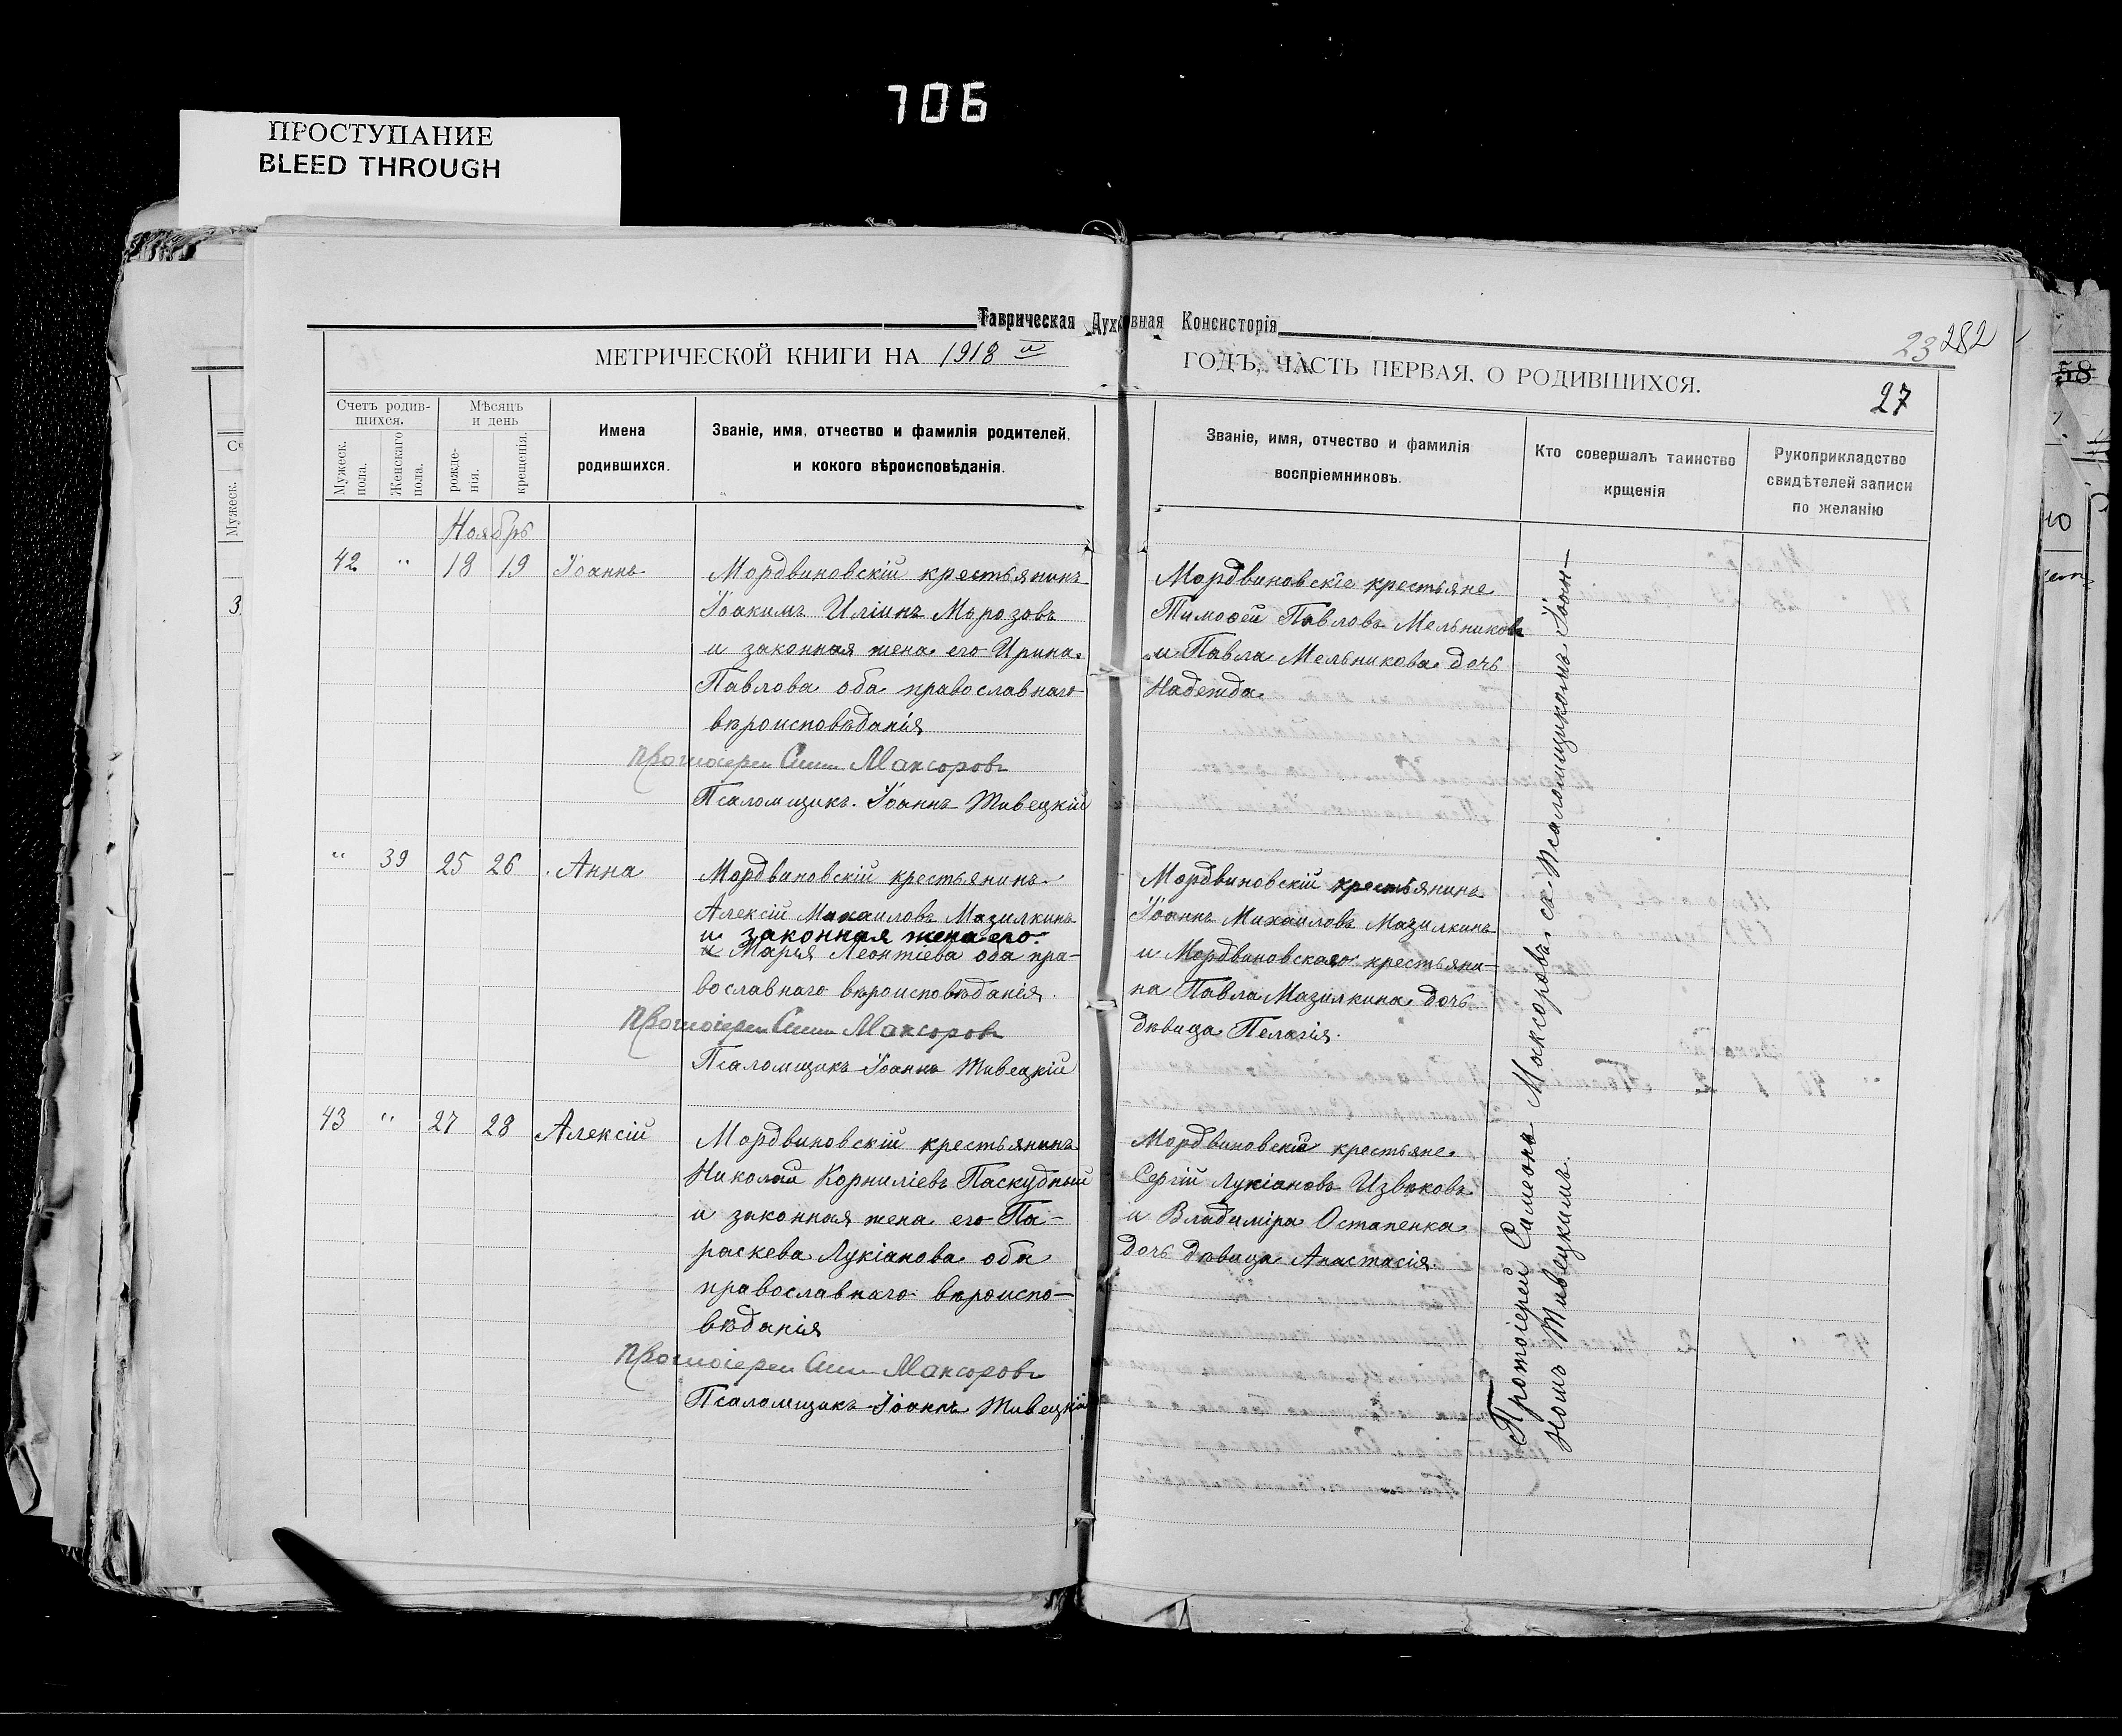 706
ПРОСТУПАНИЕ
BLEED THROUGH
Таврическая Духовная Консисторія
МЕТРИЧЕСКОЙ КНИГИ НА 1918 й
ГОДЪ, ЧАСТЬ ПЕРВАЯ, О РОДИВШИХСЯ.
23 282
27
58
Счетъ родив-
шихся.
Мужеск.
пола.
Женскаго
пола.
Мѣсяцъ
и день
рожде-
нія.
крещенія.
Имена
родившихся.
Званіе, имя, отчество и фамилія родителей,
и кокого вѣроисповѣданія.
Званіе, имя, отчество и фамилія
воспріемниковъ.
Кто совершалъ таинство
крщенія
Рукоприкладство
свидѣтелей записи
по желанію
Ноябрь
42 " 18 19 Іоаннъ
Мордвиновскій крестьянинъ
Іоакимъ Иліинъ Морозовъ
и законная жена его Ирина
Павлова оба православнаго
вѣроисповѣданія
Протоіерей Симе Максоровъ
Псаломщикъ Іоаннъ Живецкій
Мордвиновскіе крестьяне
Тимоѳей Павловъ Мельниковъ
и Павла Мельникова дочь
Надежда.
" 39 25 26 Анна
Мордвиновскій крестьянинъ
Алексій Михаиловъ Мазилкинъ
и законная жена его
и Марія Леонтіева оба пра-
вославнаго вѣроисповѣданія.
Протоіерей Симе Максоровъ
Псаломщикъ Іоаннъ Живецкій
Мордвиновскій крестьянинъ
Іоаннъ Михаиловъ Мазилкинъ
и Мордвиновскаго крестьяни-
на Павла Мазилкина дочь
дѣвица Пелагія.
43 " 27 28 Алексій
Мордвиновскій крестьянинъ
Николай Корниліевъ Паскудный
и законная жена его Па-
раскева Лукіанова оба
православнаго вѣроиспо-
вѣданія
Протоіерей Симе Максоровъ
Псаломщикъ Іоаннъ Живецкій
Мордвиновскіе крестьяне
Сергій Лукіановъ Извѣковъ
и Владиміра Остапенка
дочь дѣвица Анастасія.
Протоіерей Симеонъ Максоровъ съ псаломщикомъ Іоан-
номъ Живецкимъ.